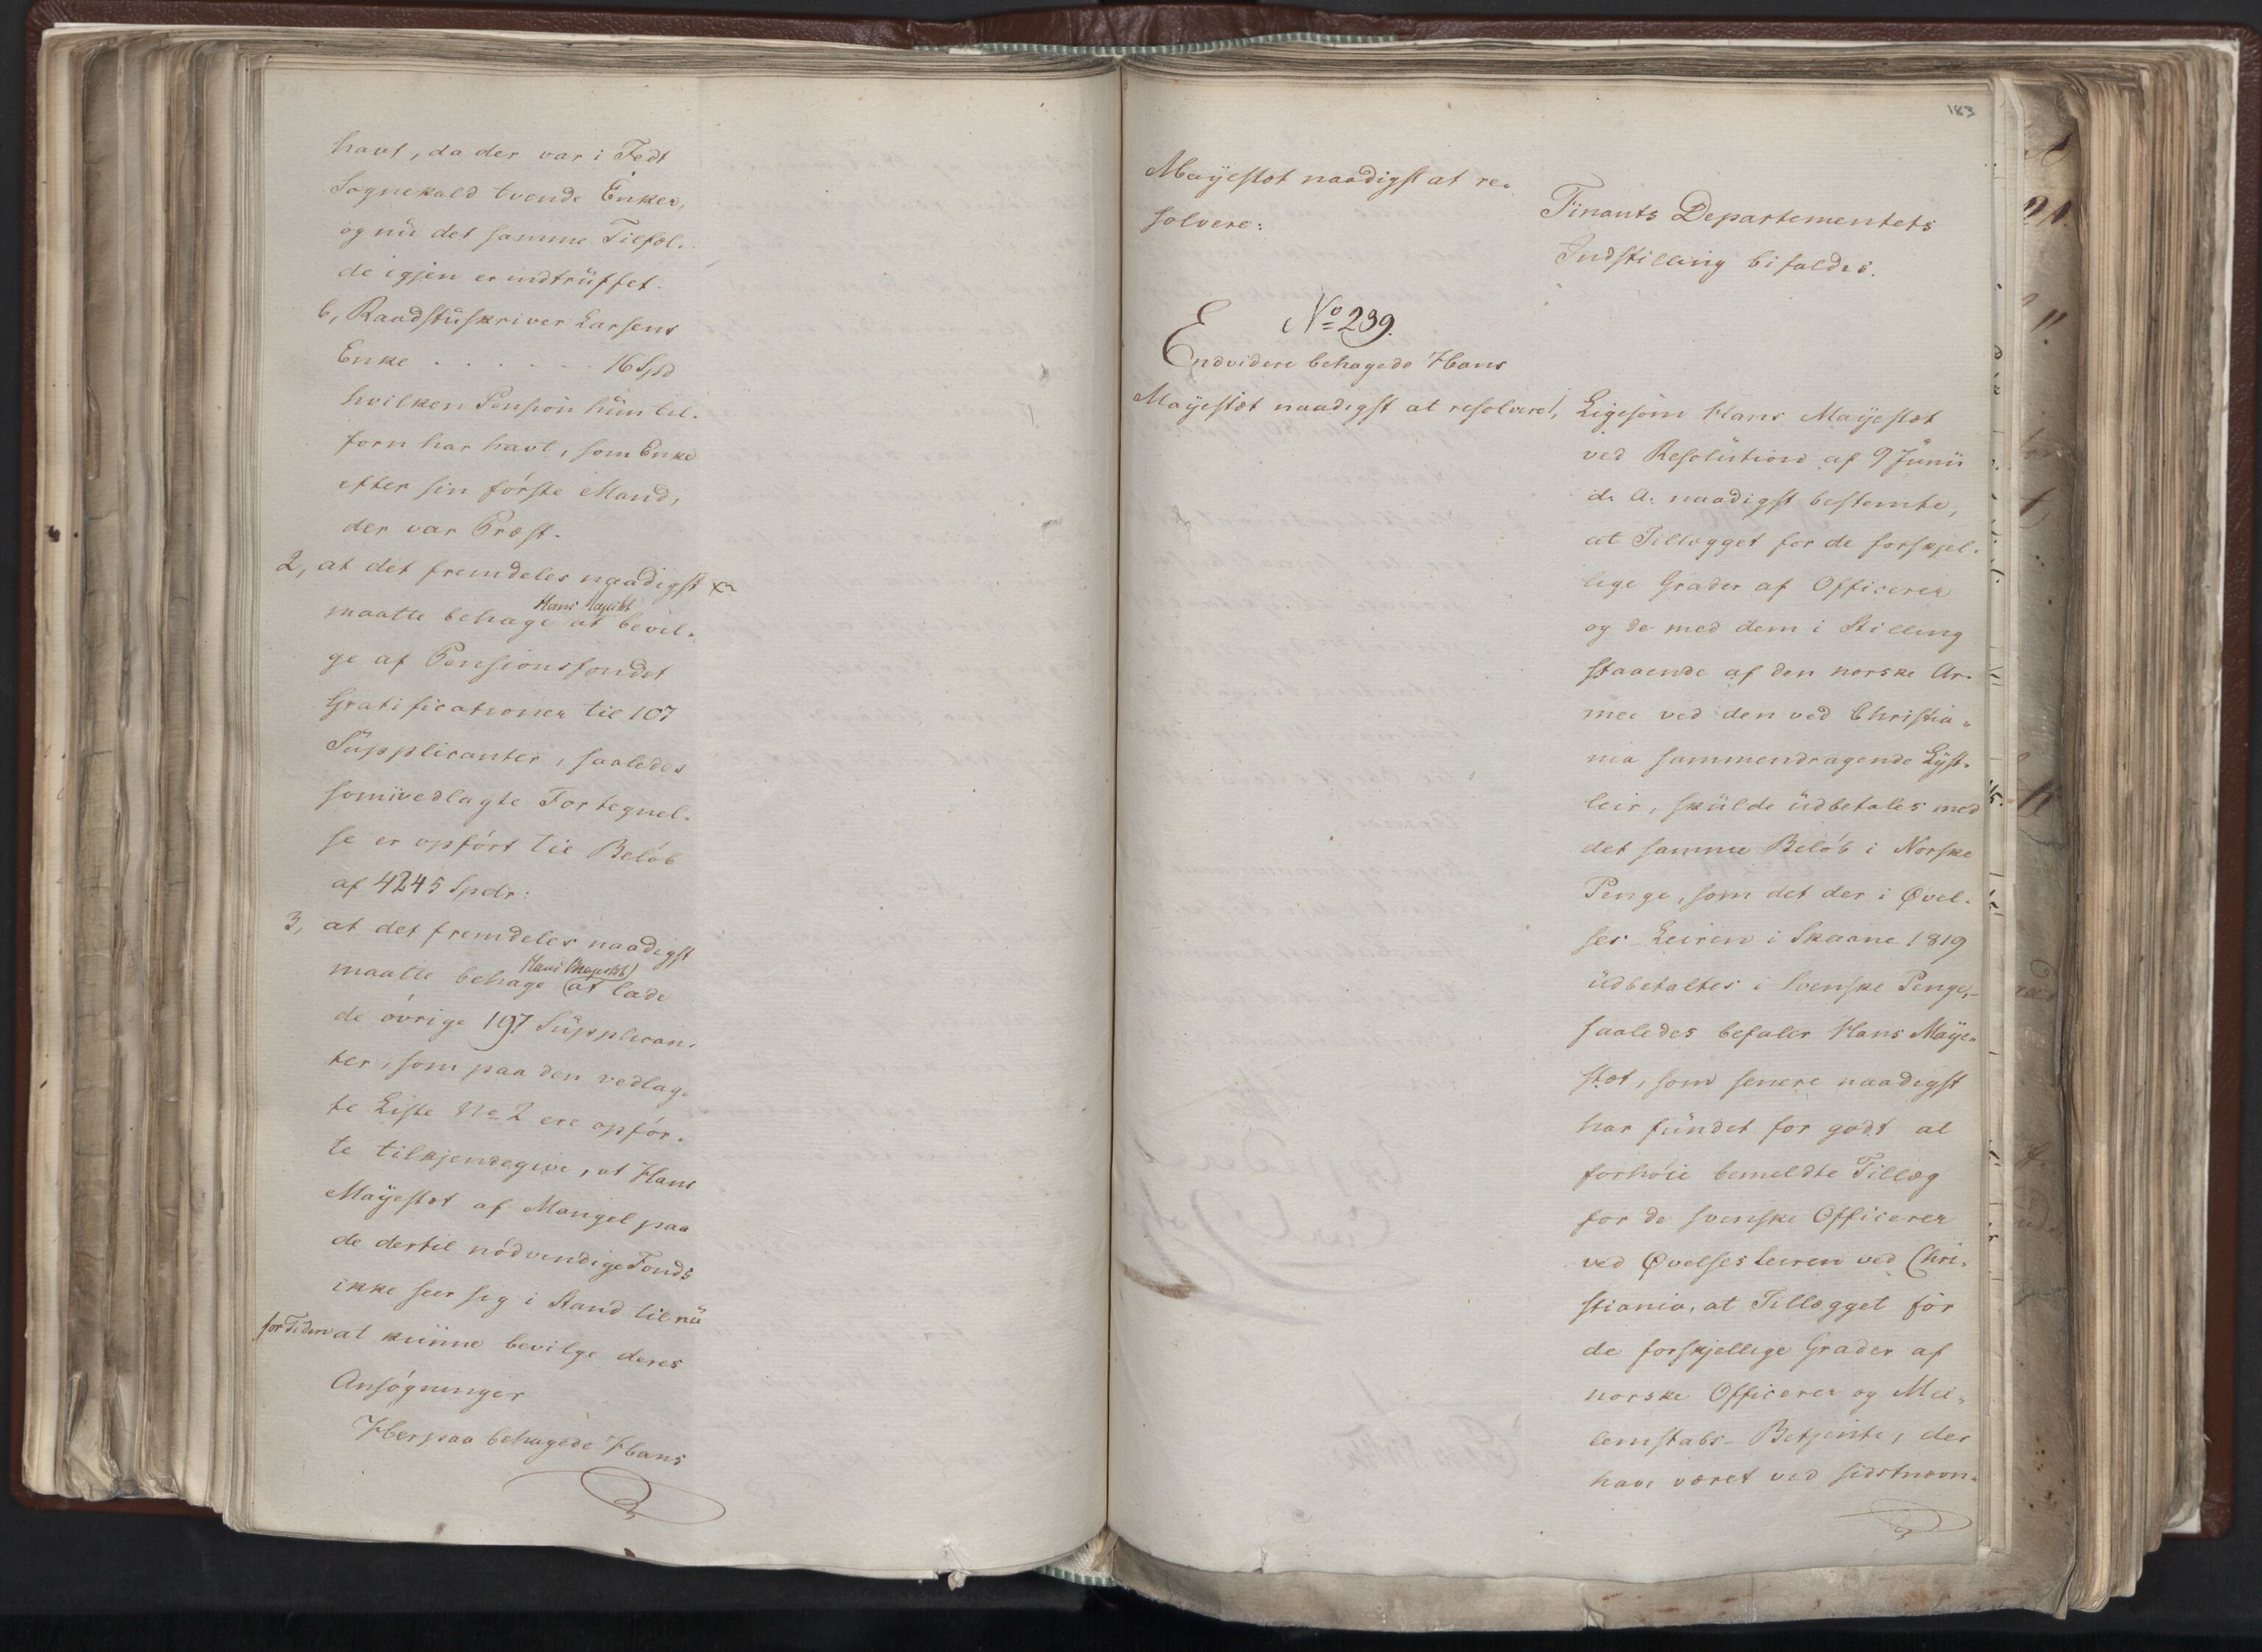 havt, da der var i Fedt
Sognekald tvende Enker,
og nü det samme Tilfæl-
de igjen er indtrüffet.
b, Raadstüskriver Larsens
Enke . . . . . . 16 Spd
hvilken Pension hün til-
forn har havt, som Enke
efter sin første Mand,
der var Præst.
2, at det fremdeles naadigst
Hans Mayestæt
maatte behage at bevil-
ge af Pensionsfondet
Gratificationer til 107
Süpplicanter, saaledes
som vedlagte Fortegnel-
se er opført til Beløb
af 4245 Spdr:
3, at det fremdeles naadigst
Hans Mayestæt
maatte behage at lade
de øvrige 197 Süpplican-
ter, som paa den vedlag-
te Liste No 2 ere opfør-
te tilkjendegive, at Hans
Mayestæt af Mangel paa
de dertil nødvendige Fonds
ikke seer sig i Stand til nü
for Tiden at künne bevilge deres
Ansøgninger
Herpaa behagede Hans
183
Mayestæt naadigst at re-
solvere:
Finants Departementets
Indstilling bifaldes.
No 239.
Endvidere behagede Hans
Mayestæt naadigst at resolvere,
Ligesom Hans Mayestæt
ved Resolütion af 9 Junii
d. A. naadigst bestemte,
at Tillægget for de forskjel-
lige Grader af Officerer
og de med dem i Stilling
staaende af den norske Ar-
mee ved den ved Christia-
nia sammendragende Lyst-
leir, skülde üdbetales med
det samme Beløb i Norske
Penge, som det der i Øvel-
ses-Leiren i Skaane 1819
üdbetaltes i Svenske Penge,-
saaledes befaler Hans Maye-
stæt, som senere naadigst
har fündet for godt at
forhøie bemeldte Tillæg
for de svenske Officerer
ved Øvelsesleiren ved Chri-
stiania, at Tillægget for
de forskjellige Grader af
norske Officerer og Mel-
lemstabs-Betjente, der
have været ved sidstnævn-